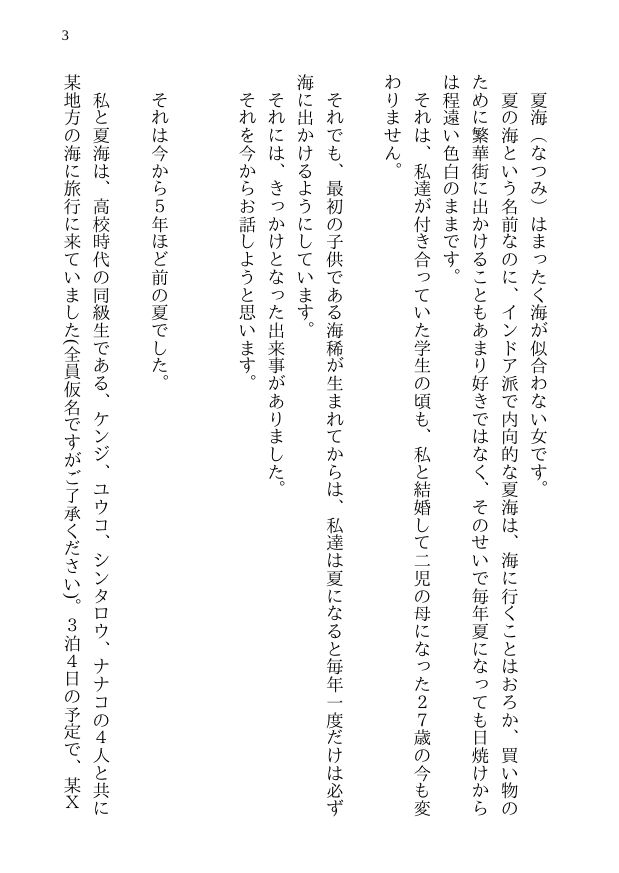 3
夏海（なつみ）はまったく海が似合わない女です。
夏の海という名前なのに、インドア派で内向的な夏海は、海に行くことはおろか、買い物の
ために繁華街に出かけることもあまり好きではなく、そのせいで毎年夏になっても日焼けから
は程遠い色白のままです。
それは、私達が付き合っていた学生の頃も、私と結婚して二児の母になった２７歳の今も変
わりません。
それでも、最初の子供である海稀が生まれてからは、私達は夏になると毎年一度だけは必ず
海に出かけるようにしています。
それには、きっかけとなった出来事がありました。
それを今からお話しようと思います。
それは今から５年ほど前の夏でした。
私と夏海は、高校時代の同級生である、ケンジ、ユウコ、シンタロウ、ナナコの４人と共に
某地方の海に旅行に来ていました(全員仮名ですがご了承ください)。３泊４日の予定で、某Ｘ